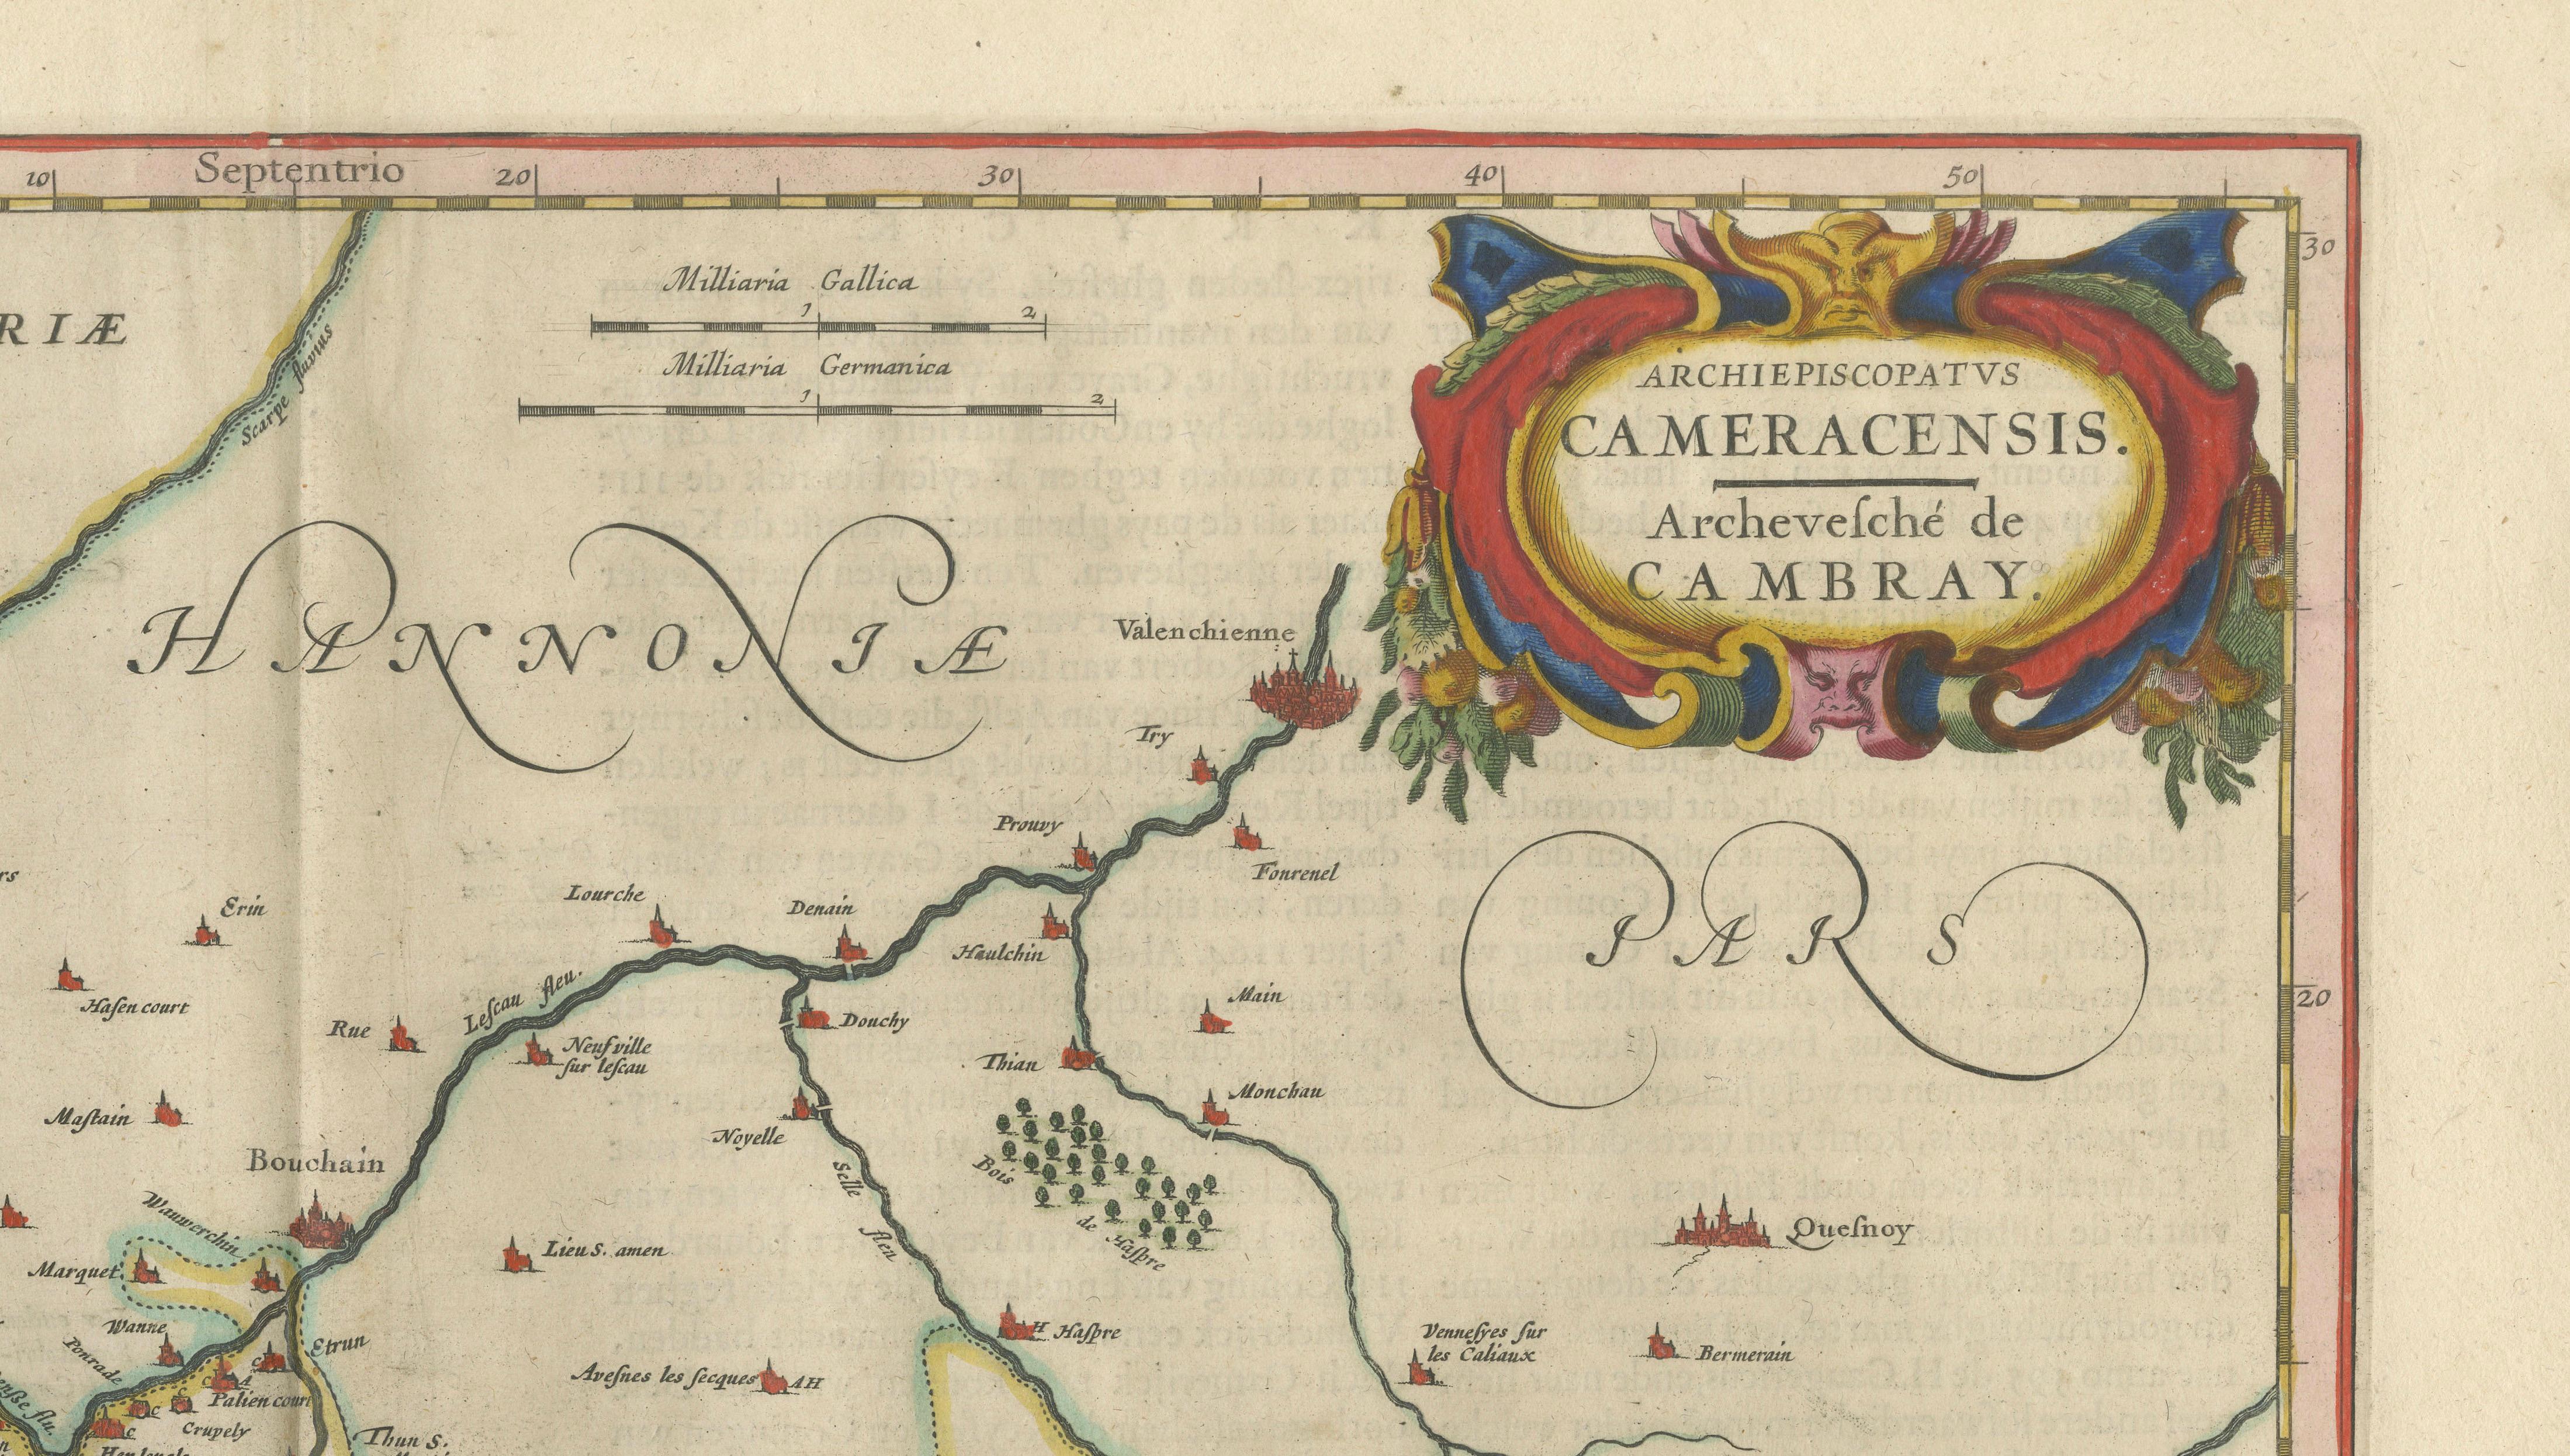 10
Septentrio
20
30
40
50
30
RIÆ
Scarpe fluvius
Milliaria Gallica
1 2
Milliaria Germanica
1 2
ARCHIEPISCOPATVS
CAMERACENSIS.
Archeveſché de
CAMBRAY.
HANNONIÆ
Valenchienne
Try
Prouvy
Fonrenel
rs
Erin
Lourche
Denain
Haulchin
PARS
Haſencourt
Leſcau fleu.
Rue
Neufville
ſur leſcau
Douchy
Main
20
Thian
Monchau
Maſtain
Noyelle
Bouchain
Selle fleu
Bois de Haſpre
Wauwerchin
Queſnoy
Marquet
Lieu S. amen
Wanne
Ponrade
Etrun
H Haſpre
Venneſyes ſur
les Caliaux
Bermerain
Aveſnes les ſecques AH
C
C A
Paliencourt
C
C
Crupely
Thun S.